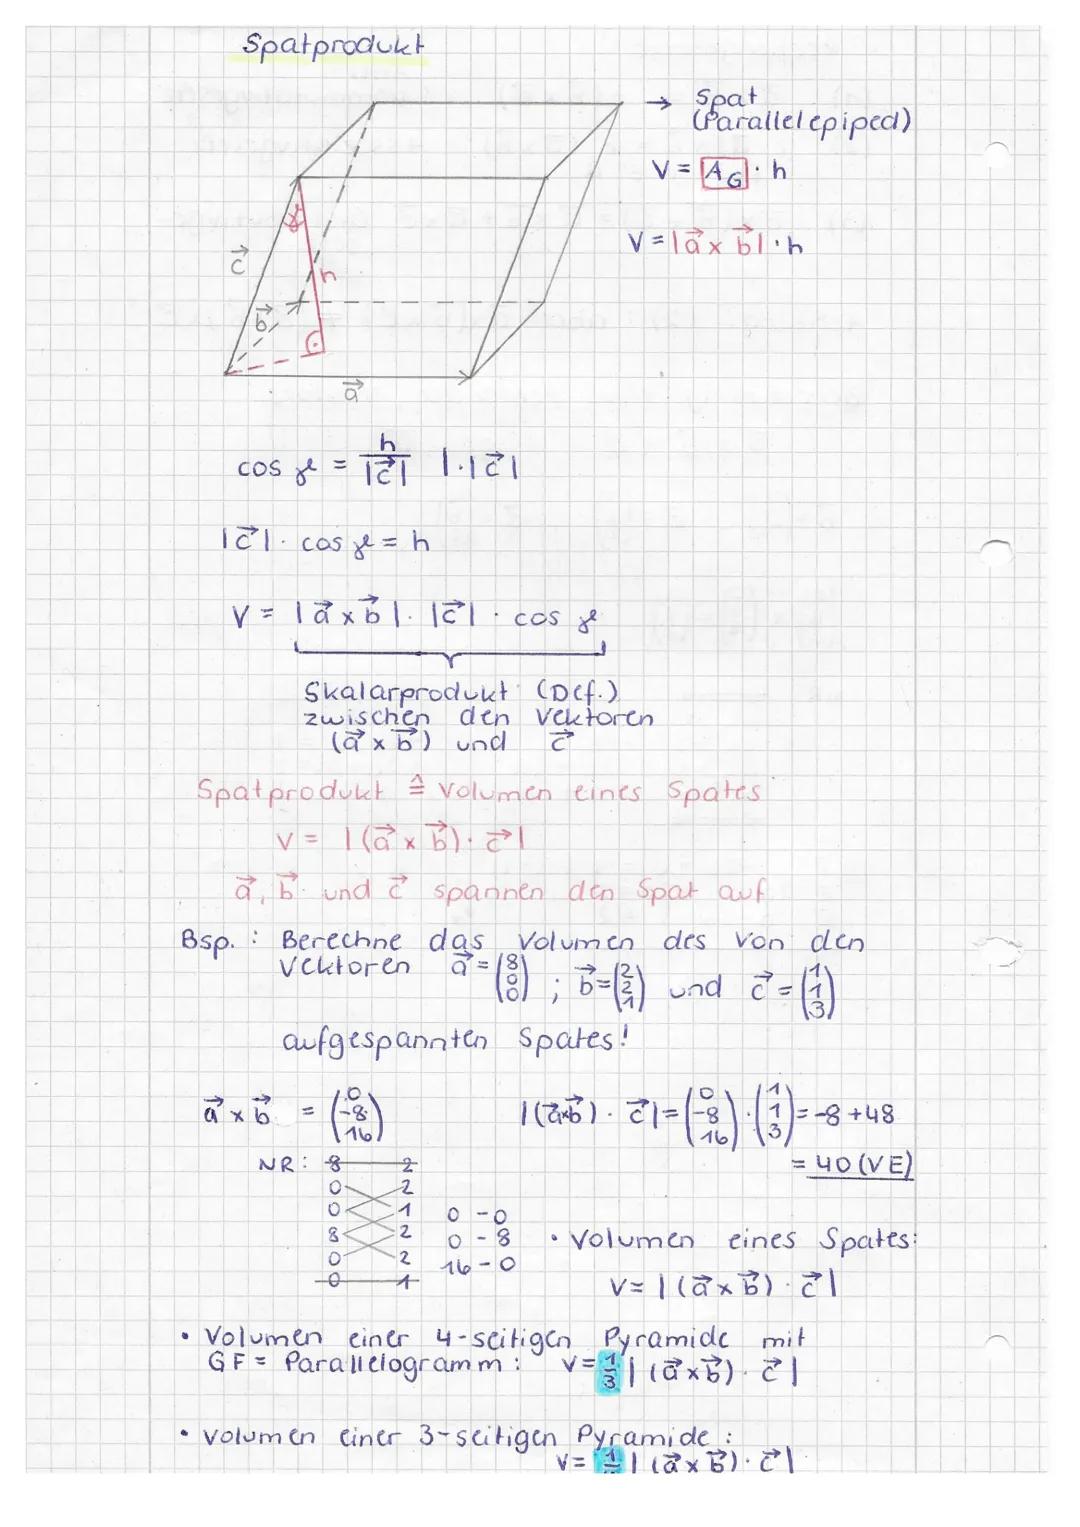 Spatprodukt
→ Spat
(Parallelepiped)
V = A_G · h
V = |a⃗ x b⃗| · h
c⃗
h
b⃗
a⃗
cos γ = h/|c⃗| | · |c⃗|
|c⃗| · cos γ = h
V = |a⃗ x b⃗| · |c⃗| · cos γ
Skalarprodukt (Def.)
zwischen den Vektoren
(a⃗ x b⃗) und c⃗
Spatprodukt ≙ Volumen eines Spates
V = |(a⃗ x b⃗) · c⃗|
a⃗, b⃗ und c⃗ spannen den Spat auf
Bsp. : Berechne das Volumen des von den
Vektoren a⃗ = (8 0 0) ; b⃗ = (2 2 1) und c⃗ = (1 1 3)
aufgespannten Spates!
a⃗ x b⃗ = (0 -8 16)
|(a⃗xb⃗) · c⃗| = (0 -8 16) · (1 1 3) = -8 + 48
= 40 (VE)
NR: 8 2
0 2
0 1 0 - 0
8 2 0 - 8
0 2 16 - 0
0 1
• Volumen eines Spates:
V = |(a⃗ x b⃗) · c⃗|
• Volumen einer 4-seitigen Pyramide mit
GF = Parallelogramm : V = 1/3 |(a⃗ x b⃗) · c⃗|
• Volumen einer 3-seitigen Pyramide :
V = 1 |(a⃗ x b⃗) · c⃗|